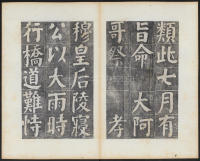 類此七月有
旨命　大阿
哥祭　　孝
穆皇后陵寢
公以大雨時
行橋道難恃